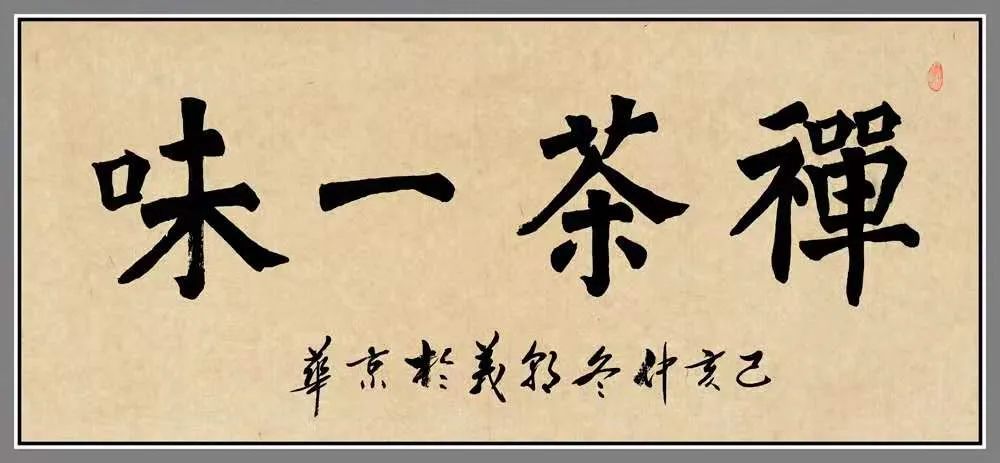 禪茶一味
己亥仲冬朝義於京華